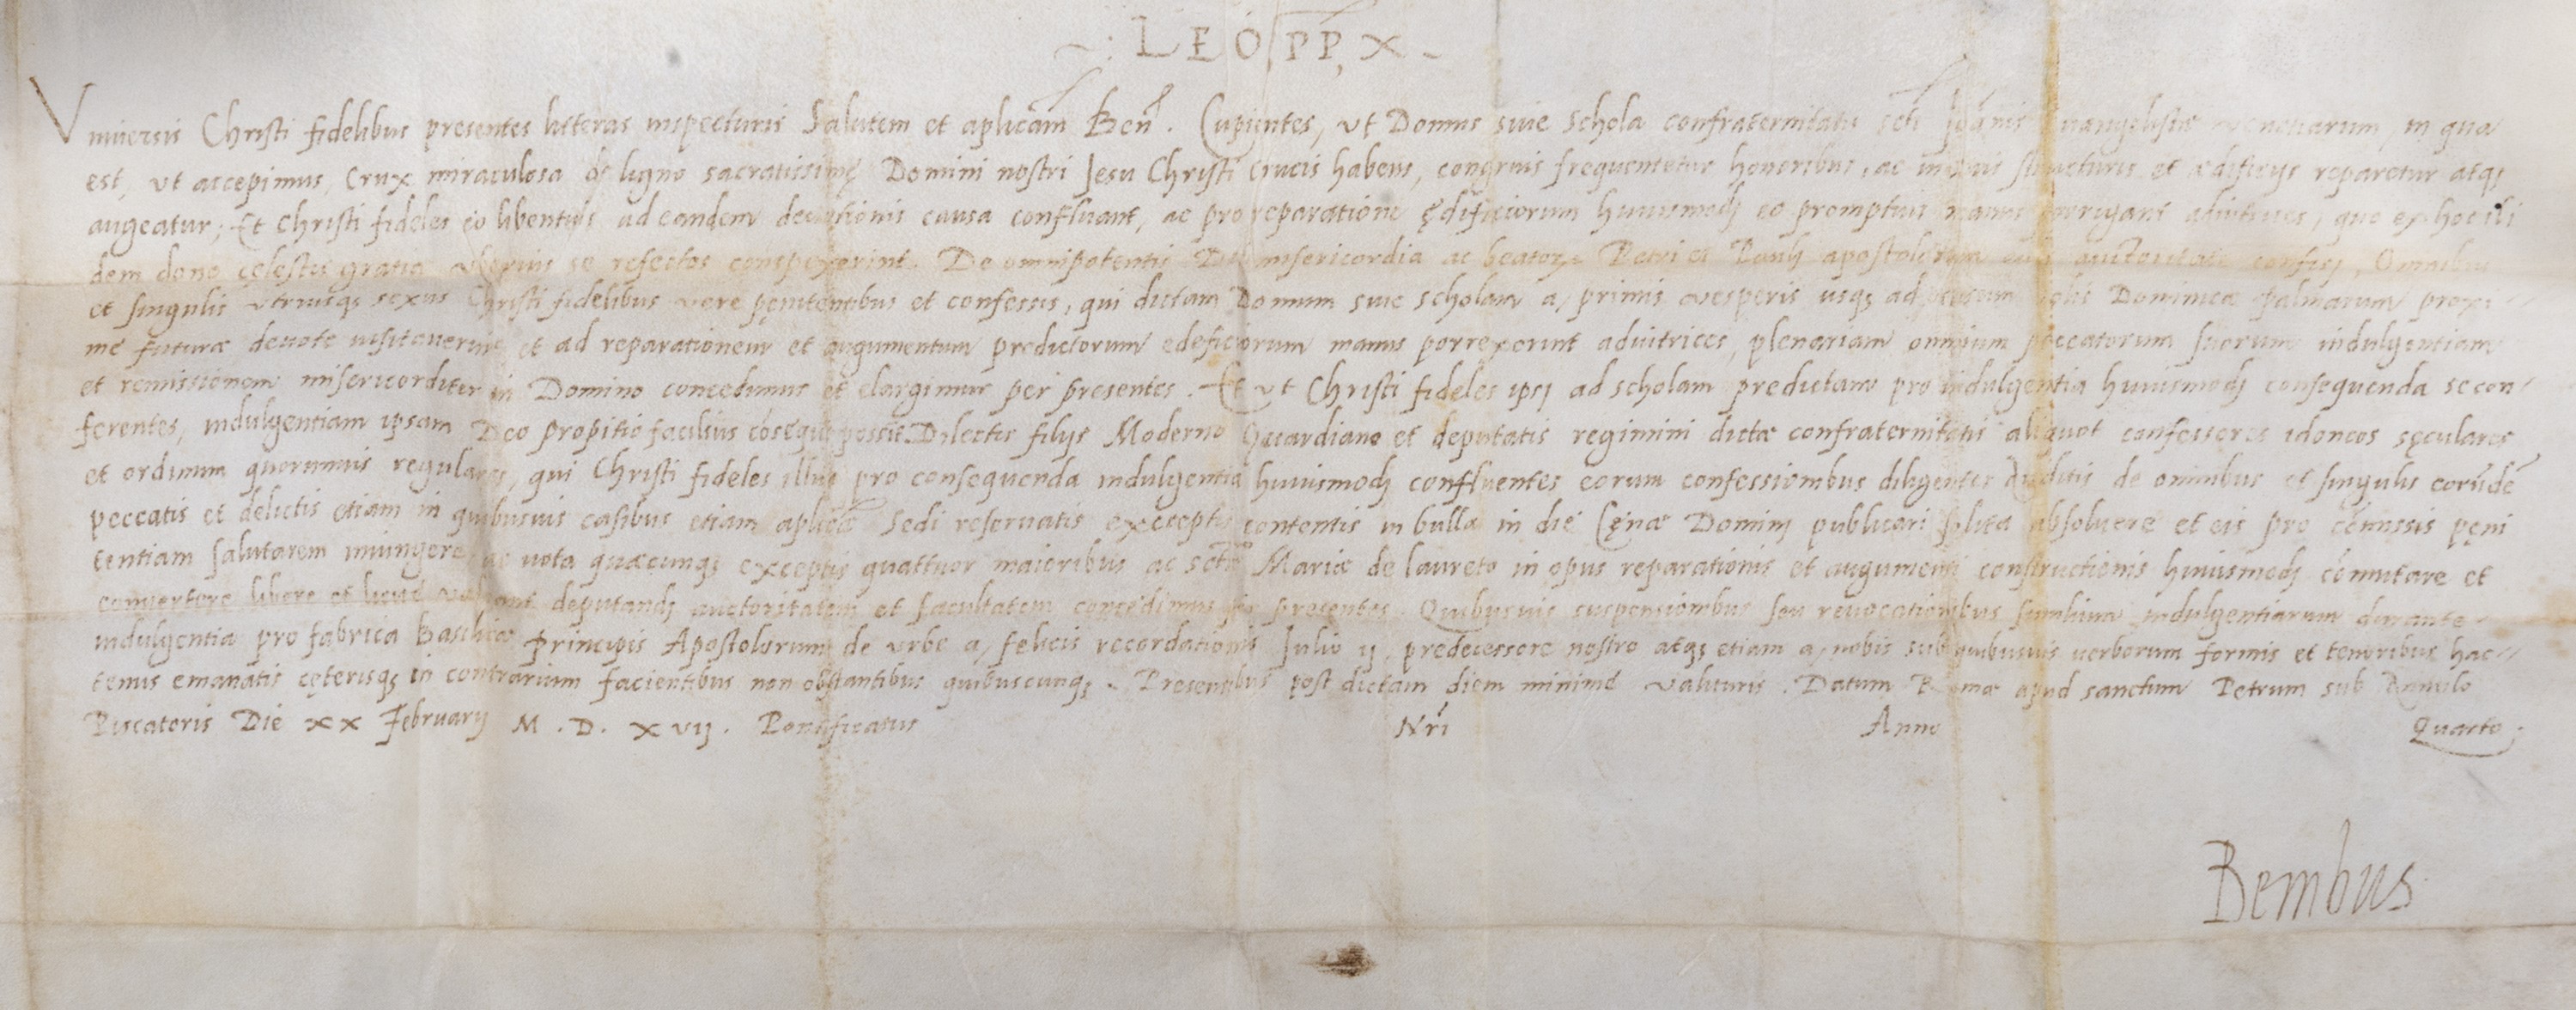 LEO PP, X
Vniuersis Christi fidelibus presentes litteras inspecturis Salutem et aplicam Ben. Cupientes, vt Domus siue Schola confraternitatis scti Joannis euangelistæ venetiarum, in qua
est, vt accepimus, Crux miraculosa de ligno sacratissimę Domini nostri Jesu Christi Crucis habens, congruis frequentetur honoribus, ac in suis structuris et ædificijs reparetur atqȝ
augeatur; Et Christi fideles eo libentius ad eandem deuotionis causa confluant, ac pro reparatione ędificiorum huiusmodj eo promptius manus porrigant adiutrices, quo ex hoc ibi
dem dono cęlestis gratia vberius se refectos conspexerint. De omnipotentis Dei misericordia ac beatorum Petri et Paulj apostolorum eius auctoritate confisj, Omnibus
et singulis vtriusqȝ sexus Christi fidelibus vere pęnitentibus et confessis, qui dictam Domum siue scholam a, primis vesperis usqȝ ad occasum solis Dominicæ Palmarum proxi-
me futuræ deuote uisitauerint, et ad reparationem et augumentum predictorum edeficiorum manus porrexerint adiutrices, plenariam omnium peccatorum suorum indulgentiam
et remissionem misericorditer in Domino concedimus et elargimur per presentes. Et vt Christi fideles ipsj ad scholam predictam pro indulgentia huiusmodj consequenda se con-
ferentes, indulgentiam ipsam Deo propitio facilius cōsequi possīt Dilectis filijs Moderno Guardiano et deputatis regimini dictæ confraternitatis aliquot confessores idoneos sęculares
et ordinum quorumuis regulares, qui Christi fideles illuc pro consequenda indulgentia huiusmodj confluentes eorum confessionibus diligenter Auditis de omnibus et singulis eorūdē
peccatis et delictis etiam in quibusuis casibus etiam aplicæ Sedi reseruatis exceptis contentis in bulla in die Cęnæ Dominj publicari solita absoluere et eis pro cōmissis pęni
tentiam salutarem iniungere, ac uota quæcunqȝ exceptis quattuor maioribus ac sctæ Mariæ de laureto in opus reparationis et augumenti constructionis huiusmodj cōmutare et
conuertere libere et licite ualeant deputandj auctoritatem et facultatem concedimus per presentes. Quibusuis suspensionibus seu reuocationibus similium indulgentiarum durante
indulgentia pro fabrica Basilicæ Principis Apostolorum de vrbe a, felicis recordationis Julio ij. predecessore nostro atqȝ etiam a, nobis sub quibusuis uerborum formis et tenoribus hac-
tenus emanatis cęterisqȝ in contrarium facientibus non obstantibus quibuscunqȝ. Presentibus post dictam diem minime valituris. Datum Romæ apud sanctum Petrum sub Annulo
Piscatoris Die xx Februarij M. D. XVIJ. Pontificatus Nri Anno Quarto.
Bembus